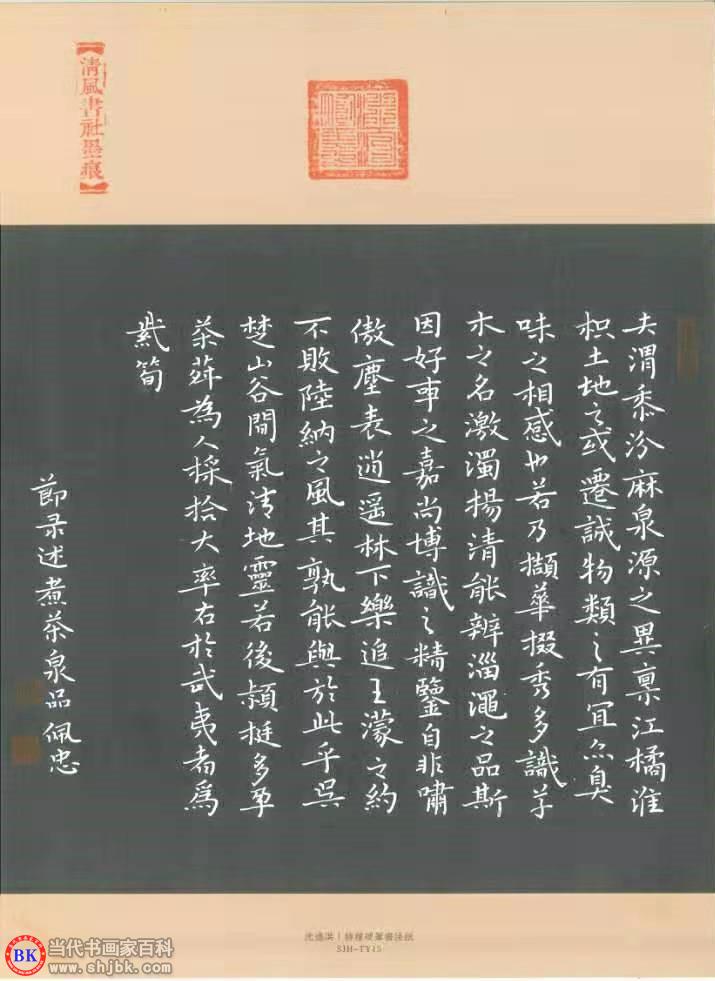 【清風書社墨痕】
夫渭黍汾麻泉源之異稟江橘淮
枳土地之或遷誠物類之有宜亦臭
味之相感也若乃擷華掇秀多識草
木之名激濁揚清能辨淄澠之品斯
因好事之嘉尚博識之精鑒自非嘯
傲塵表逍遥林下樂追王濛之約
不敗陸納之風其孰能與於此乎吳
楚山谷間氣清地靈若後穎挺多孕
茶荈為人採拾大率右於武夷者為
紫筍
節录述煮茶泉品佩忠
特種硬筆書法紙
SJH-TY15
BK 当代书画家百科
www.shjbk.com